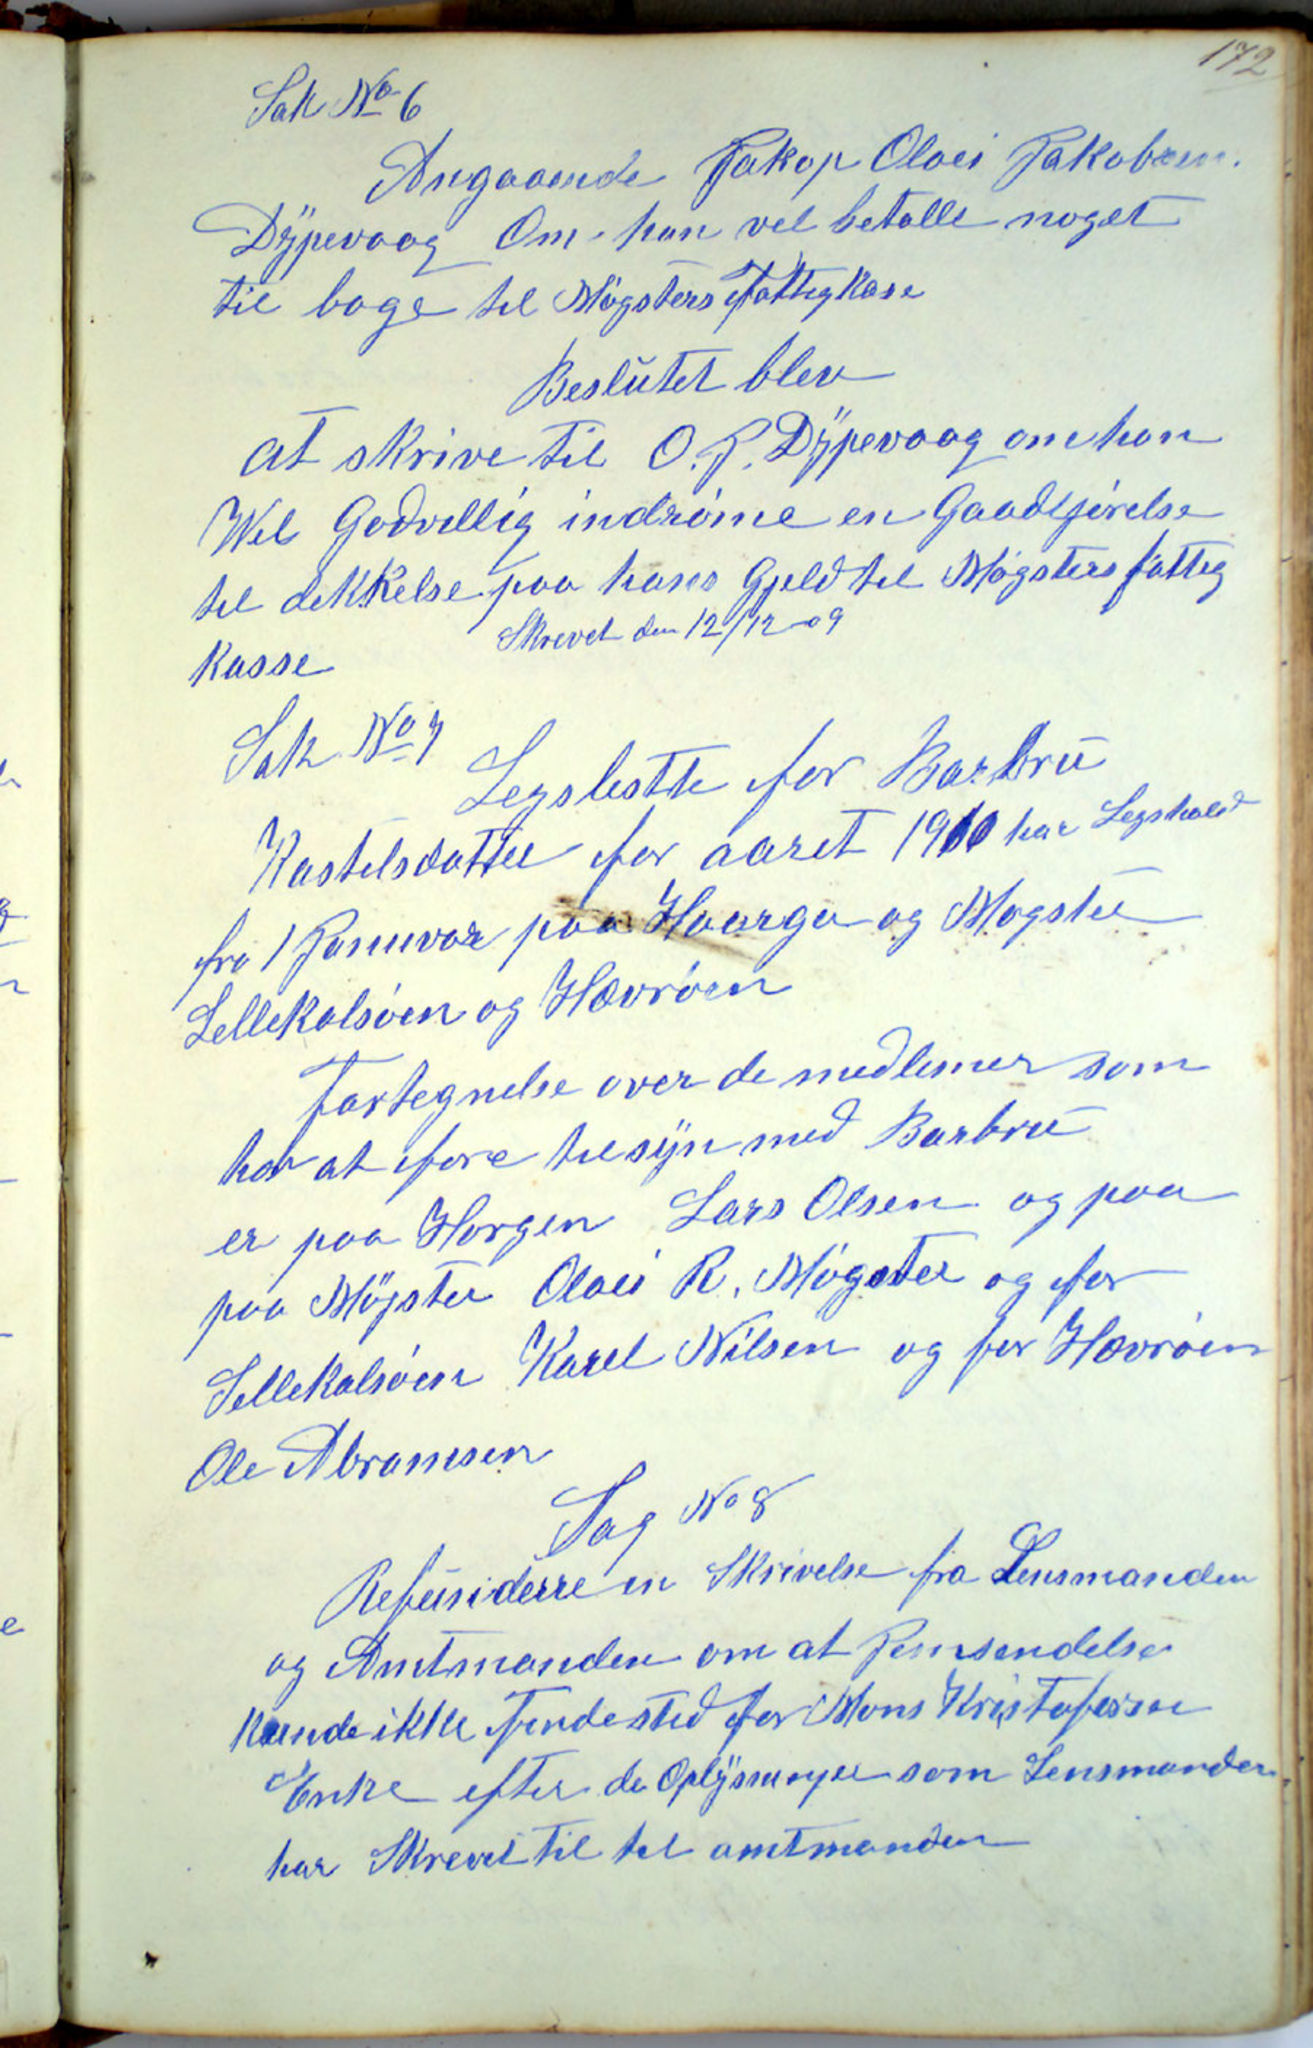 172
Sak No 6
Angaaende Jakop Olaei Jakobsen.
Dÿpevaag Om han vel betalle noget
til bage tel Møgsters Fattigkase
Beslutet blev
at skrive til O. J. Dÿpevaag om han
Wel Godvellig indrøme en Gaadtjørelse
tel dekkelse paa hans Gjeld tel Møgsters fatteg
Skrevet den 12/12 09
Kasse
Sak No 7
Legsleste for Barbru
Kastelsdatter for aaret 1910 har Legshold
fra 1 Januvar paa Haarga og Møgster
Lellekalsøen og Hævrøen
Fortegnelse over de medlemer som
har at føre tilsÿn med Barbru
er paa Horgen Lars Olsen og paa
paa Møgster Olaei R. Møgster og for
Lellekalsøen Karel Nilsen og for Hævrøen
Ole Abramsen
Sag No 8
Refusiderre en Skrivelse fra Lensmanden
og Amtmanden om at Jemsendelse
kunde ikke finde sted for Mons Kristofersen
Enke efter de Oplÿsninger som Lensmanden
har Skrevet til tel amtmanden